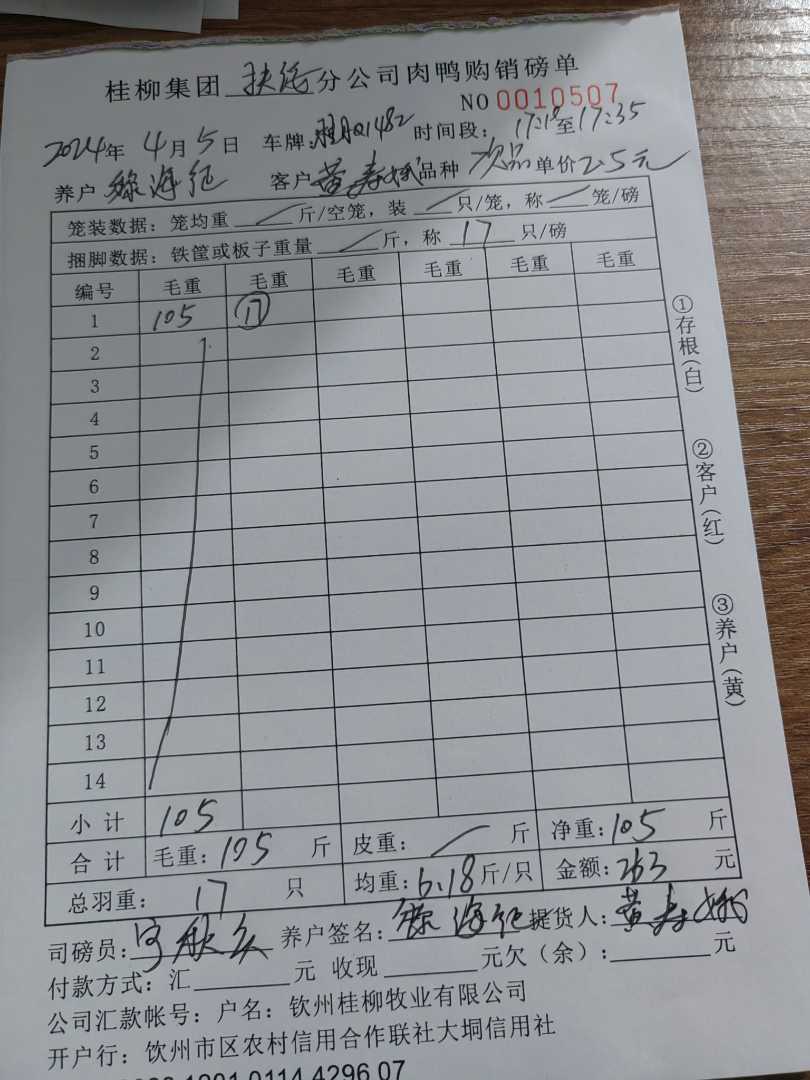 桂柳集团 扶绥 分公司肉鸭购销磅单
NO 0010507
2024年 4月 5日 车牌: 时间段: 17:18至17:35
养户 海 客户 黄寿 品种 次品 单价 2.5元
笼装数据: 笼均重 / 斤/空笼, 装 / 只/笼, 称 / 笼/磅
捆脚数据: 铁筐或板子重量 / 斤, 称 17 只/磅
编号 毛重 毛重 毛重 毛重 毛重 毛重
1 105 ⑰
2
3
4
5
6
7
8
9
10
11
12
13
14
小计 105
合计 毛重: 105 斤 皮重: / 斤 净重: 105 斤
总羽重: 17 只 均重: 6.18 斤/只 金额: 263 元
司磅员: 养户签名: 海 提货人: 黄寿
付款方式: 汇 元 收现 元欠(余): 元
公司汇款帐号: 户名: 钦州桂柳牧业有限公司
开户行: 钦州市区农村信用合作联社大垌信用社
1201 0114 4296 07
①存根(白)
②客户(红)
③养户(黄)